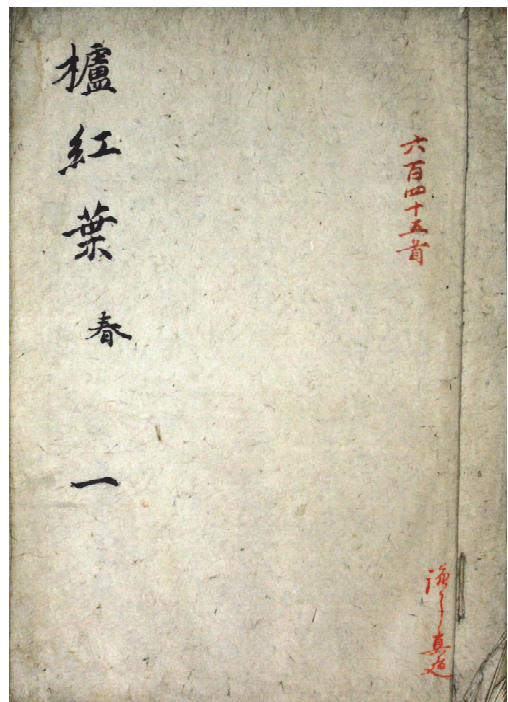 六百四十五首
真逸
櫨紅葉 春 一